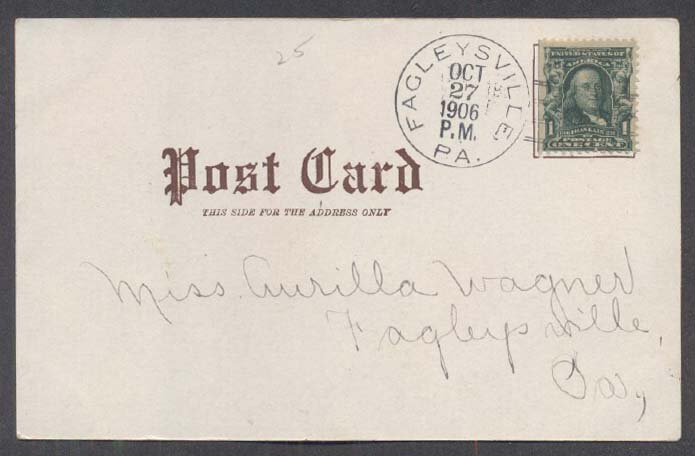 25
FAGLEYSVILLE
OCT
27
1906
P.M.
PA.
UNITED STATES OF
AMERICA
1 1
POSTAGE
ONE CENT
Post Card
THIS SIDE FOR THE ADDRESS ONLY
Miss. Aurilla Wagner
Fagleysville,
Pa,